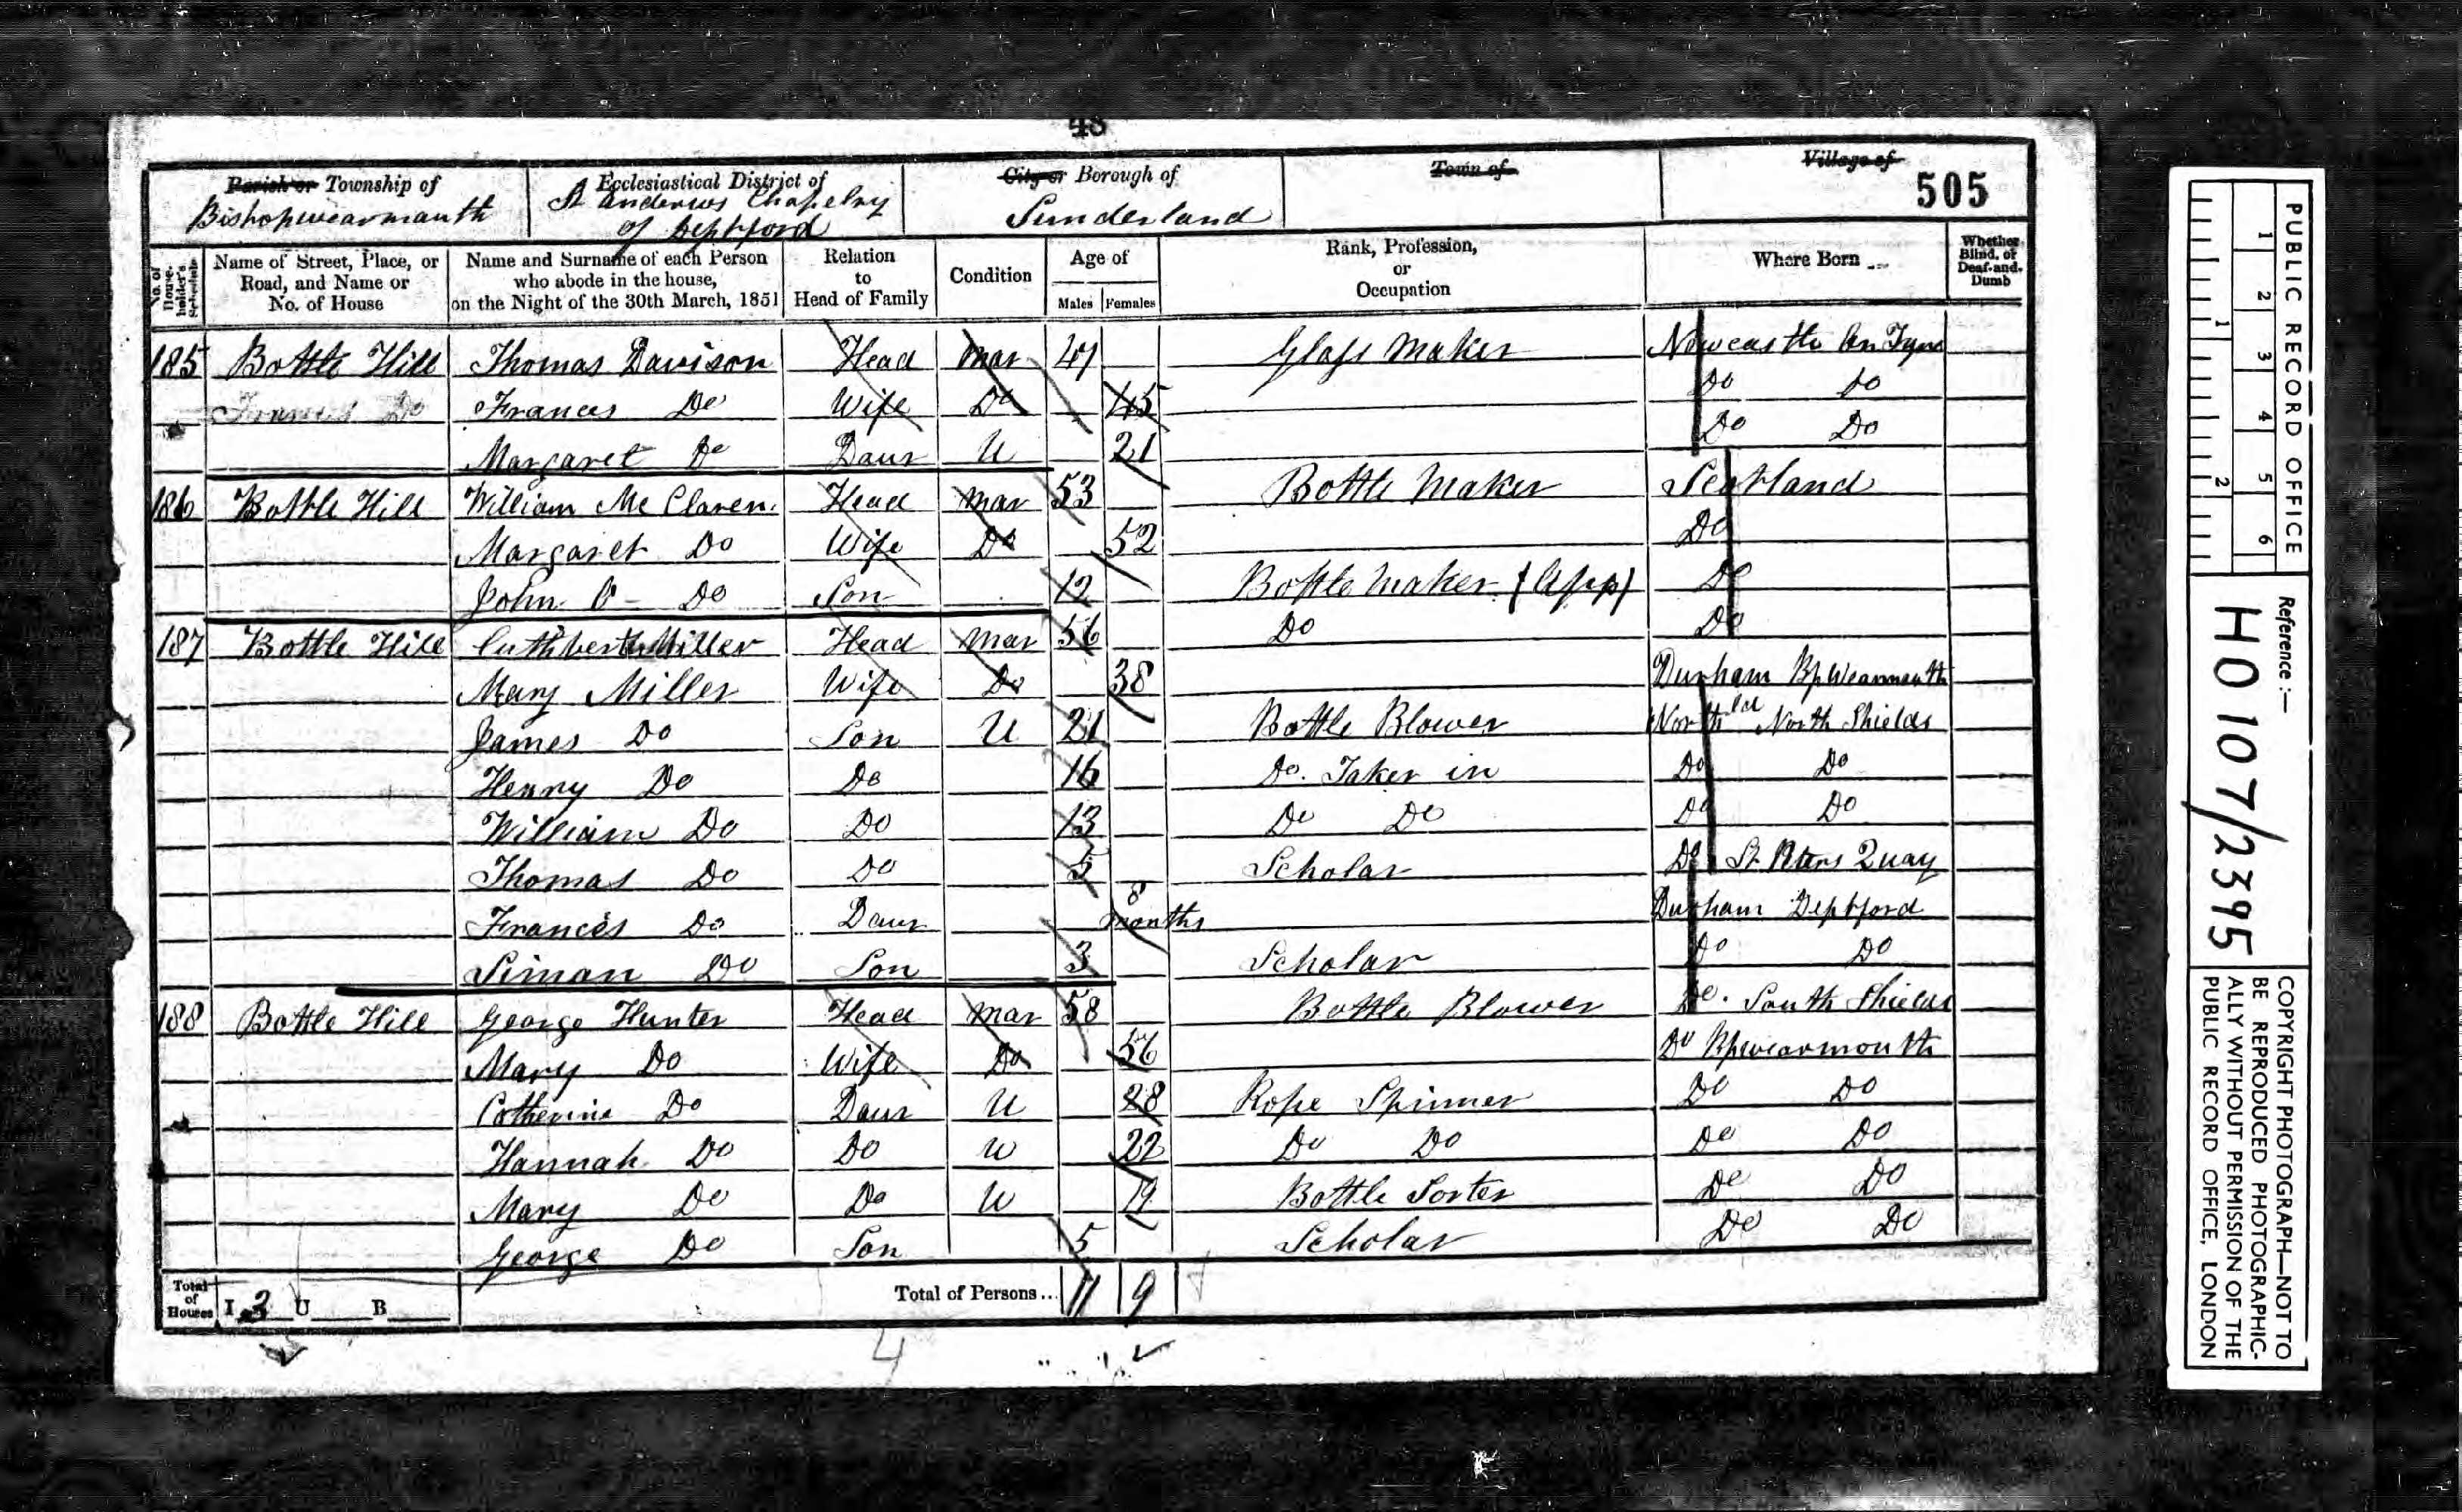 48
Parish or Township of
Bishopwearmouth
Ecclesiastical District of
St Andrews Chapelry
of Deptford
City or Borough of
Sunderland
Town of
Village of
505
No. of House-holder's Schedule
Name of Street, Place, or Road, and Name or No. of House
Name and Surname of each Person who abode in the house, on the Night of the 30th March, 1851
Relation to Head of Family
Condition
Age of
Males Females
Rank, Profession, or Occupation
Where Born
Whether Blind, or Deaf-and-Dumb
185 Bottle Hill Thomas Davison Head Mar 47 Glass Maker Newcastle On Tyne
Frances Do Frances Do Wife Do 45 Do Do
Margaret Do Daur U 21 Do Do
186 Bottle Hill William Mc Claren Head Mar 53 Bottle Maker Scotland
Margaret Do Wife Do 52 Do
John Do Son 12 Bottle Maker (App) Do
187 Bottle Hill Cuthbert Miller Head Mar 56 Do Do
Mary Miller Wife Do 38 Durham Bpwearmouth
James Do Son U 21 Bottle Blower Northld North Shields
Henry Do Do 16 Do. Taker in Do Do
William Do Do 13 Do Do Do Do
Thomas Do Do 5 Scholar Do St Peters Quay
Frances Do Daur 8 months Durham Deptford
Siman Do Son 3 Scholar Do Do
188 Bottle Hill George Hunter Head Mar 58 Bottle Blower Do. South Shields
Mary Do Wife Do 56 Do Bpwearmouth
Catherine Do Daur U 28 Rope Spinner Do Do
Hannah Do Do U 22 Do Do Do Do
Mary Do Do U 19 Bottle Sorter Do Do
George Do Son 5 Scholar Do Do
Total of Houses I 3 U B Total of Persons... 11 9
4
PUBLIC RECORD OFFICE
1 2 3 4 5 6
1 2
Reference:-
HO 107/2395
COPYRIGHT PHOTOGRAPH—NOT TO
BE REPRODUCED PHOTOGRAPHIC-
ALLY WITHOUT PERMISSION OF THE
PUBLIC RECORD OFFICE, LONDON